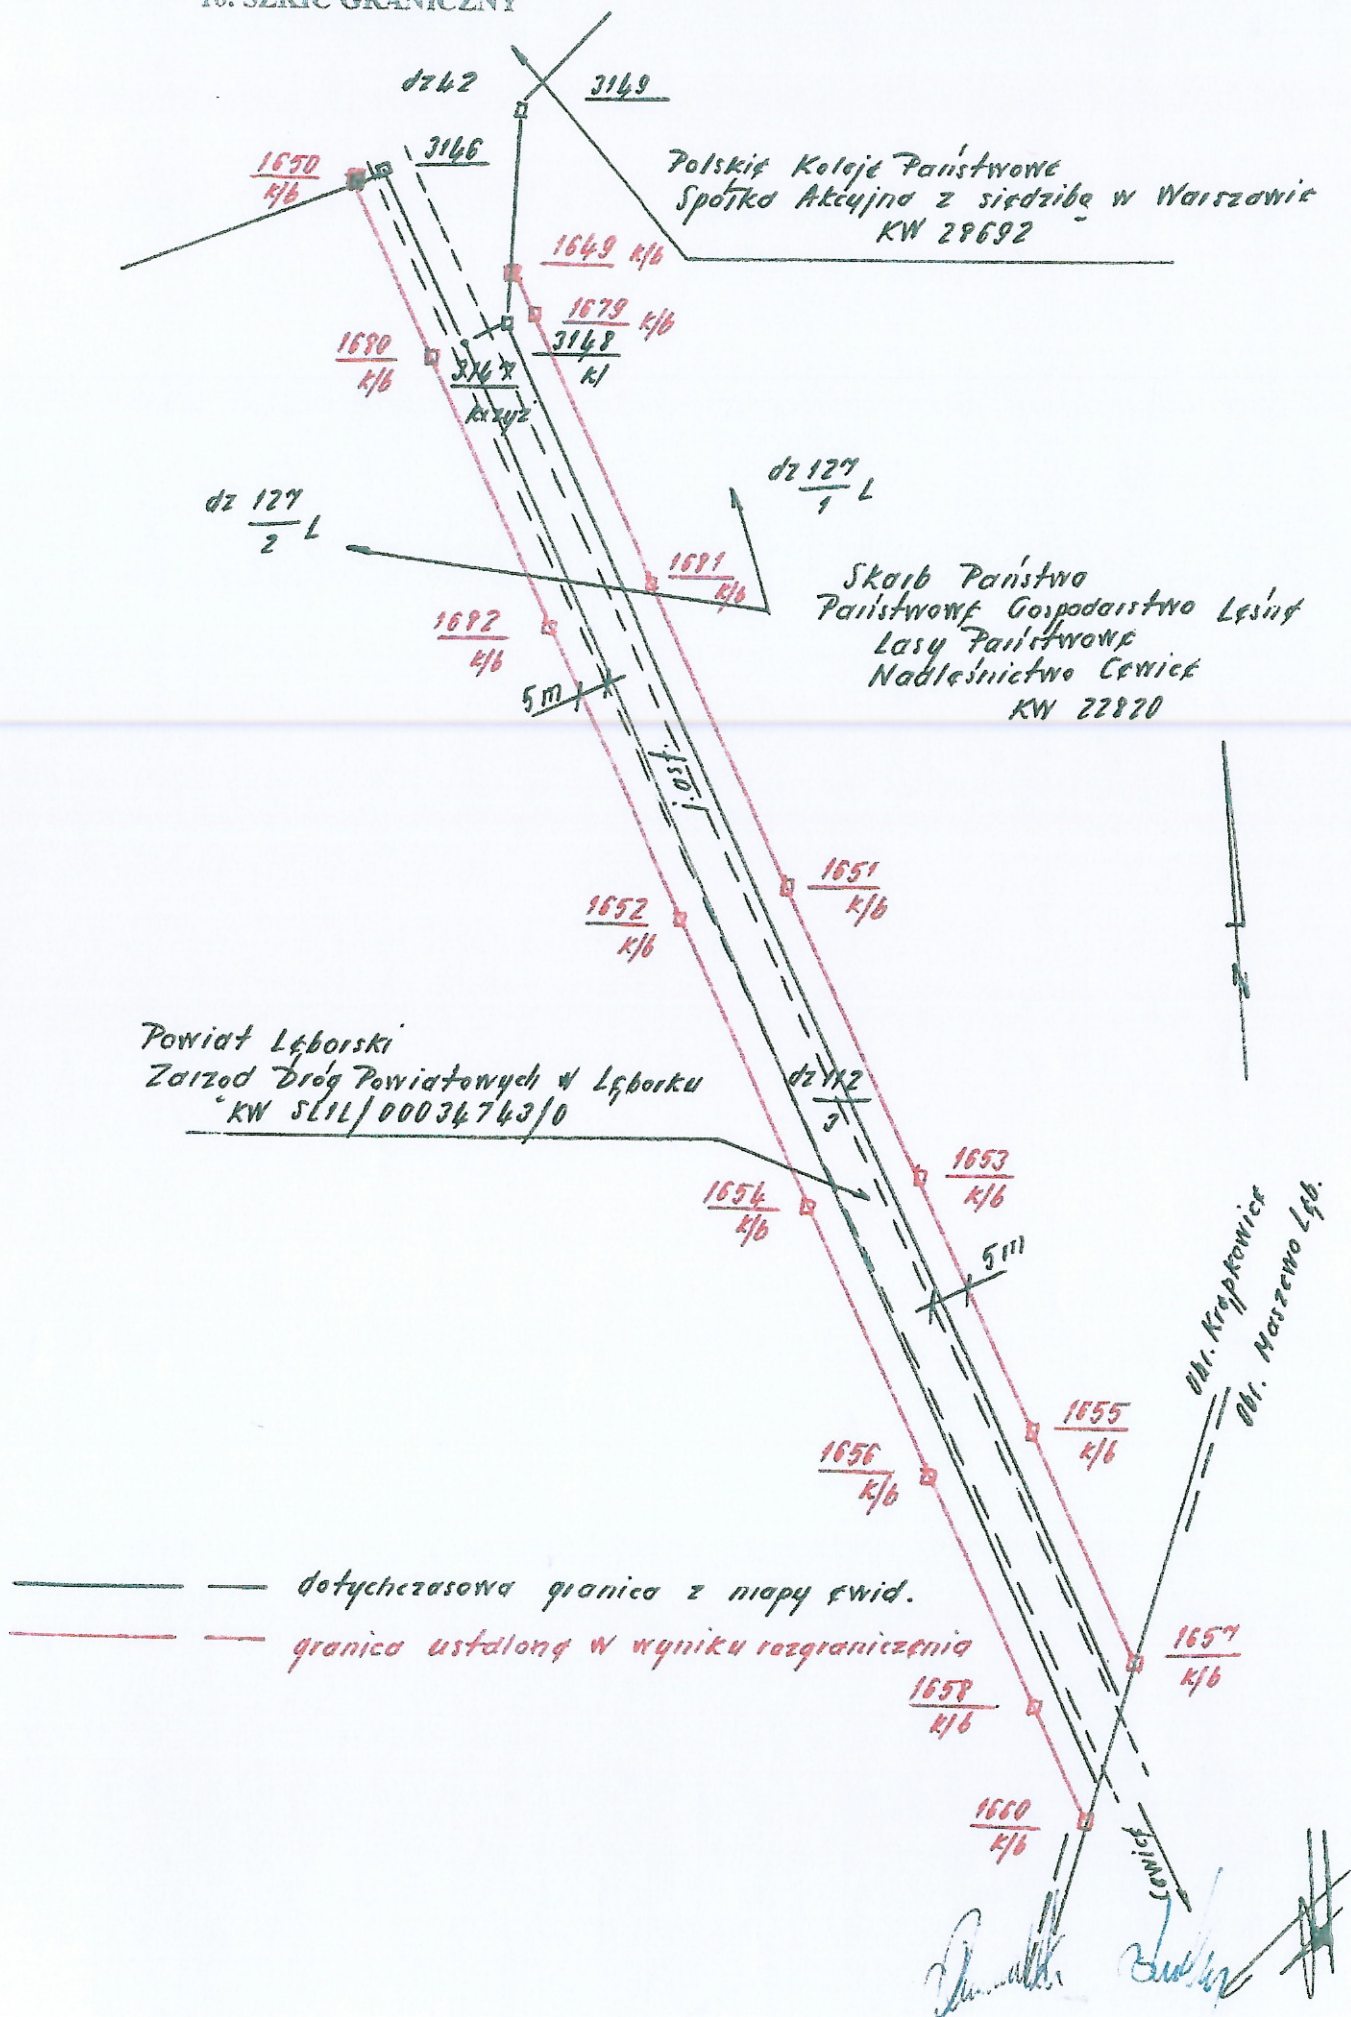 10. SZKIC GRANICZNY
dz 42
3149
3146
1650
k/b
Polskie Koleje Państwowe
Spółka Akcyjna z siedzibą w Warszawie
KW 28692
1649 k/b
1679 k/b
3148
kł
1680
k/b
3147
krzyż
dz 127/2 Ł
dz 127/1 Ł
1681
k/b
Skarb Państwa
Państwowe Gospodarstwo Leśne
Lasy Państwowe
Nadleśnictwo Cewice
KW 22820
1682
k/b
5 m
j. asf.
1651
k/b
1652
k/b
N
Powiat Lęborski
Zarząd Dróg Powiatowych w Lęborku
KW SL1L/00034743/0
dz 112/3
1653
k/b
1654
k/b
5 m
Obr. Krępkowice
Obr. Maszewo Lęb.
1655
k/b
1656
k/b
dotychczasowa granica z mapy ewid.
granica ustalona w wyniku rozgraniczenia
1657
k/b
1658
k/b
1660
k/b
Cewice